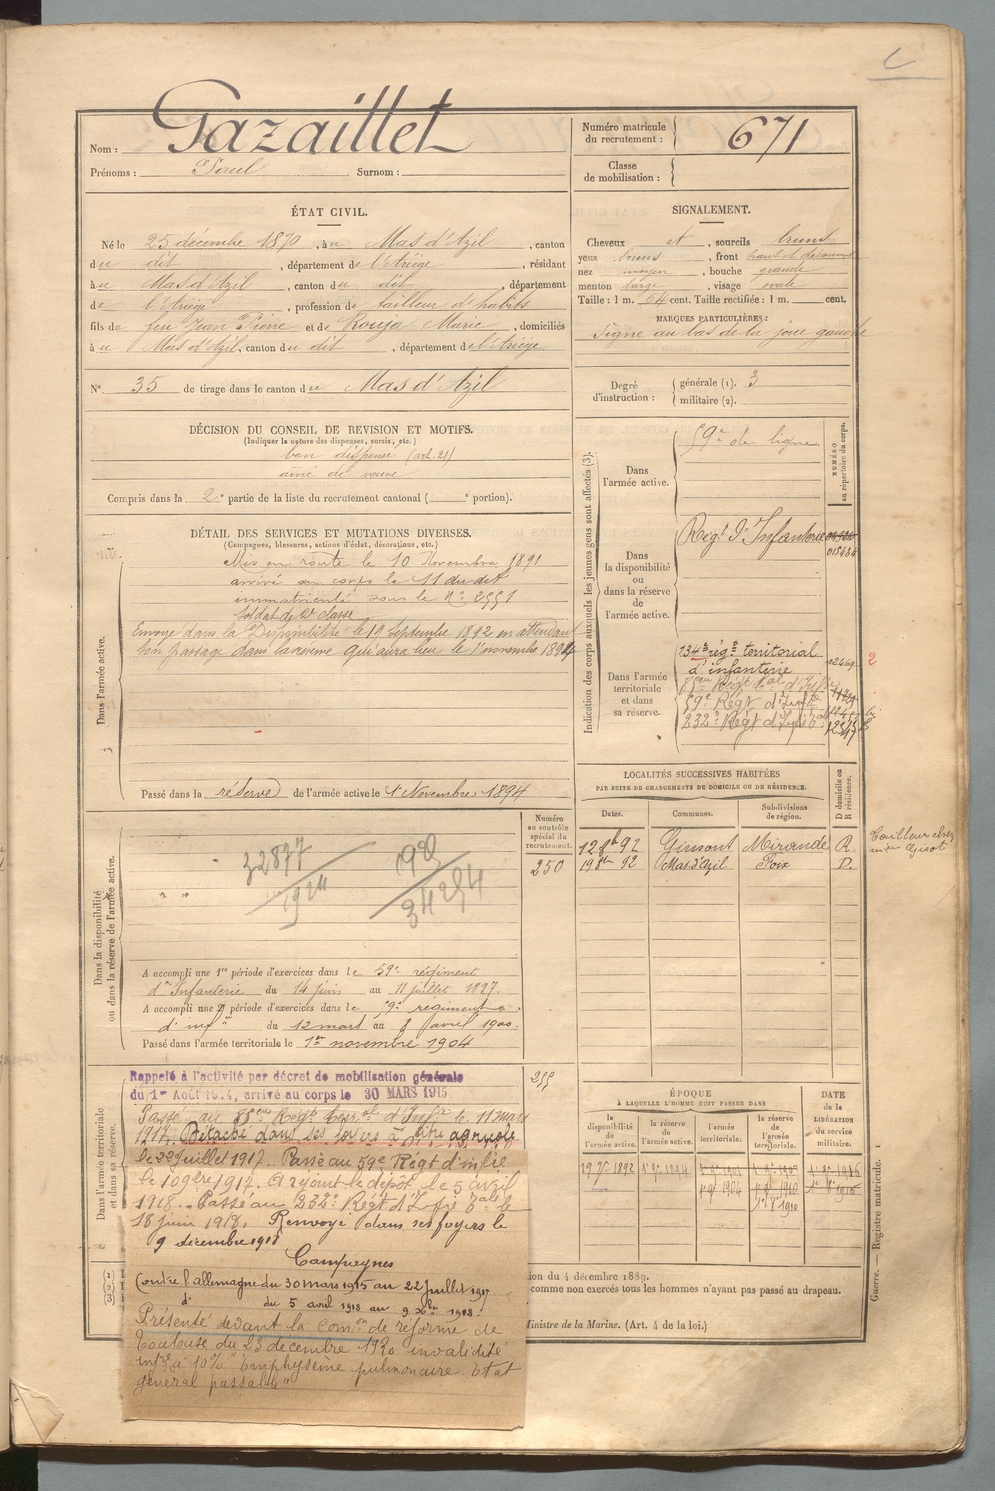 C
Nom : Gazaillet
Prénoms : Paul Surnom :
Numéro matricule du recrutement : 671
Classe de mobilisation :
ÉTAT CIVIL.
Né le 25 décembre 1870, à u Mas d'Azil, canton
du dit, département de l'Ariège, résidant
à u Mas d'Azil, canton du dit, département
de l'Ariège, profession de tailleur d'habits
fils de feu Jean Pierre et de Rouja Marie, domiciliés
à u Mas d'Azil, canton du dit, département de l'Ariège
N° 35 de tirage dans le canton du Mas d'Azil
SIGNALEMENT.
Cheveux et, sourcils bruns
yeux bruns, front haut et découvert
nez moyen, bouche grande
menton large, visage ovale
Taille : 1 m. 64 cent. Taille rectifiée : 1 m. cent.
MARQUES PARTICULIÈRES :
Signe au bas de la joue gauche
Degré d'instruction : générale (1). 3
militaire (2).
DÉCISION DU CONSEIL DE REVISION ET MOTIFS.
(Indiquer la nature des dispenses, sursis, etc.)
bon dispensé (art. 21)
ainé de veuve
Compris dans la 2e partie de la liste du recrutement cantonal ( e portion).
DÉTAIL DES SERVICES ET MUTATIONS DIVERSES.
(Campagnes, blessures, actions d'éclat, décorations, etc.)
Dans l'armée active.
Mis en route le 10 Novembre 1891
arrivé au corps le 11 du dit
immatriculé sous le N° 2551
Soldat de 2e classe
Envoyé dans la Disponibilité le 19 Septembre 1892 en attendant
son passage dans la réserve qui aura lieu le 1er novembre 1894
Passé dans la réserve de l'armée active le 1er Novembre 1894
Indication des corps auxquels les jeunes gens sont affectés (3).
NUMÉRO au répertoire du corps.
Dans l'armée active.
59e de ligne
Dans la disponibilité ou dans la réserve de l'armée active.
Régt d'Infanterie
015434
Dans l'armée territoriale et dans sa réserve.
134e régt territorial
d'infanterie
12469
2
85eme Régt tal d'Infie
59e Régt d'Infie
232e Régt d'Infie
LOCALITÉS SUCCESSIVES HABITÉES
PAR SUITE DE CHANGEMENTS DE DOMICILE OU DE RÉSIDENCE.
D domicile ou R résidence.
Dates. Communes. Subdivisions de région.
12 9b 92 Gimont Mirande R
19 8bre 92 Mas d'Azil Foix D.
Tailleur chez
Numéro au contrôle spécial du recrutement.
250
Dans la disponibilité ou dans la réserve de l'armée active.
32877
1924
34254
A accompli une 1re période d'exercices dans le 59e régiment
d'Infanterie du 14 juin au 11 juillet 1897.
A accompli une 2e période d'exercices dans le 59e régiment
d'infie du 12 mars au 8 avril 1900.
Passé dans l'armée territoriale le 1er novembre 1904
Dans l'armée territoriale et dans sa réserve.
Rappelé à l'activité par décret de mobilisation générale
du 1er Août 1914, arrivé au corps le 30 MARS 1915
Passé au 85eme Régt Terral d'Infie le 11 mars
1917. Détaché dans ses foyers à titre agricole
le 22 Juillet 1917. Passé au 59e Régt d'infie
le 10 9bre 1917. A rejoint le dépôt le 5 avril
1918. Passé au 232e Régt d'Infie le
18 juin 1918. Renvoyé dans ses foyers le
9 décembre 1918
Campagnes
Contre l'allemagne du 30 mars 1915 au 22 Juillet 1917
d° du 5 avril 1918 au 9 Xbre 1918.
Présenté devant la Comon de réforme de
Toulouse du 23 décembre 1920 invalidité
infre à 10% "Emphysème pulmonaire Etat
général passable"
ÉPOQUE
À LAQUELLE L'HOMME DOIT PASSER DANS
la disponibilité de l'armée active.
la réserve de l'armée active.
l'armée territoriale.
la réserve de l'armée territoriale.
DATE de la LIBÉRATION du service militaire.
19 7bre 1892
1er 9bre 1894
1er 9bre 1904
1er 9bre 1910
1er 9bre 1916
ion du 4 décembre 1889.
comme non exercés tous les hommes n'ayant pas passé au drapeau.
Ministre de la Marine. (Art. 4 de la loi.)
(1)
(2)
(3)
Guerre. — Registre matricule. 1